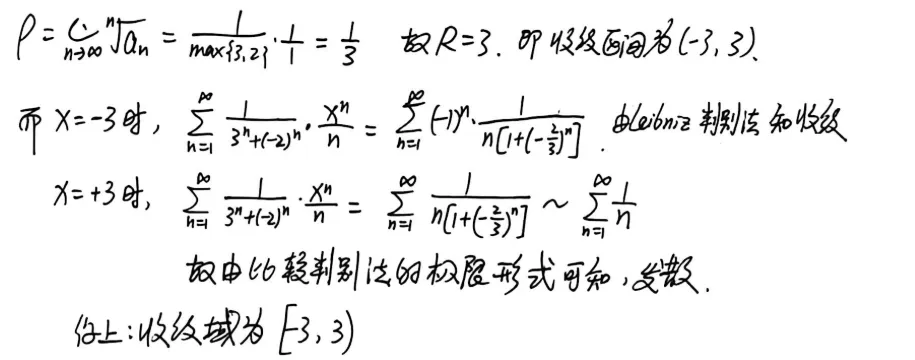 ρ = lim_{n→∞} ⁿ√aₙ = 1/max{3,2} · 1/1 = 1/3 故 R=3. 即收敛区间为 (-3, 3).
而 x=-3时, ∑_{n=1}^{∞} 1/(3ⁿ+(-2)ⁿ) · xⁿ/n = ∑_{n=1}^{∞} (-1)ⁿ · 1/(n[1+(-2/3)ⁿ]). 由Leibniz 判别法知收敛
x=+3时, ∑_{n=1}^{∞} 1/(3ⁿ+(-2)ⁿ) · xⁿ/n = ∑_{n=1}^{∞} 1/(n[1+(-2/3)ⁿ]) ~ ∑_{n=1}^{∞} 1/n
故由比较判别法的极限形式可知,发散.
综上:收敛域为 [-3, 3)